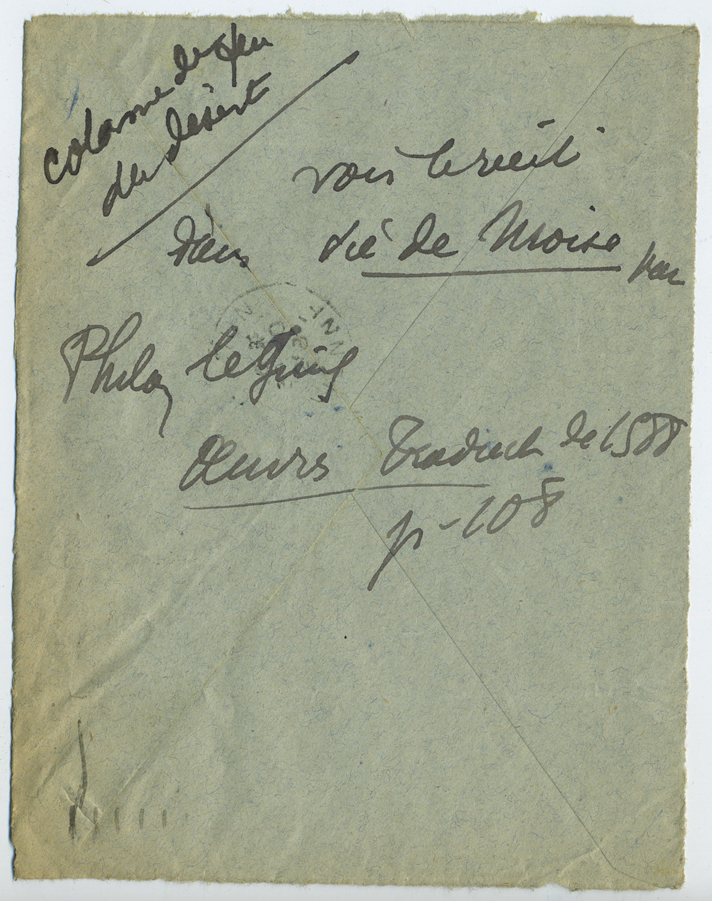 colonne de feu
du désert
voir le récit
dans vie de Moise par
Philon le Juif
Oeuvres Traduct de 1588
p-108